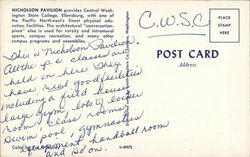 NICHOLSON PAVILION provides Central Washington State College, Ellensburg, with one of the Pacific Northwest's finest physical education facilities. The architectural "conversation piece" also is used for varsity and intramural sports, campus recreation, and many other campus programs and assemblies.
C.W.S.C.
PLACE
STAMP
HERE
POST CARD
Address
This is Nicholson Pavilion.
All the p.e. classes are
held in here. They
have real good facilities
including a field house,
large gym, lots of locker
room, class rooms,
swim pool, gymnastics
equipment, handball room
and so on.